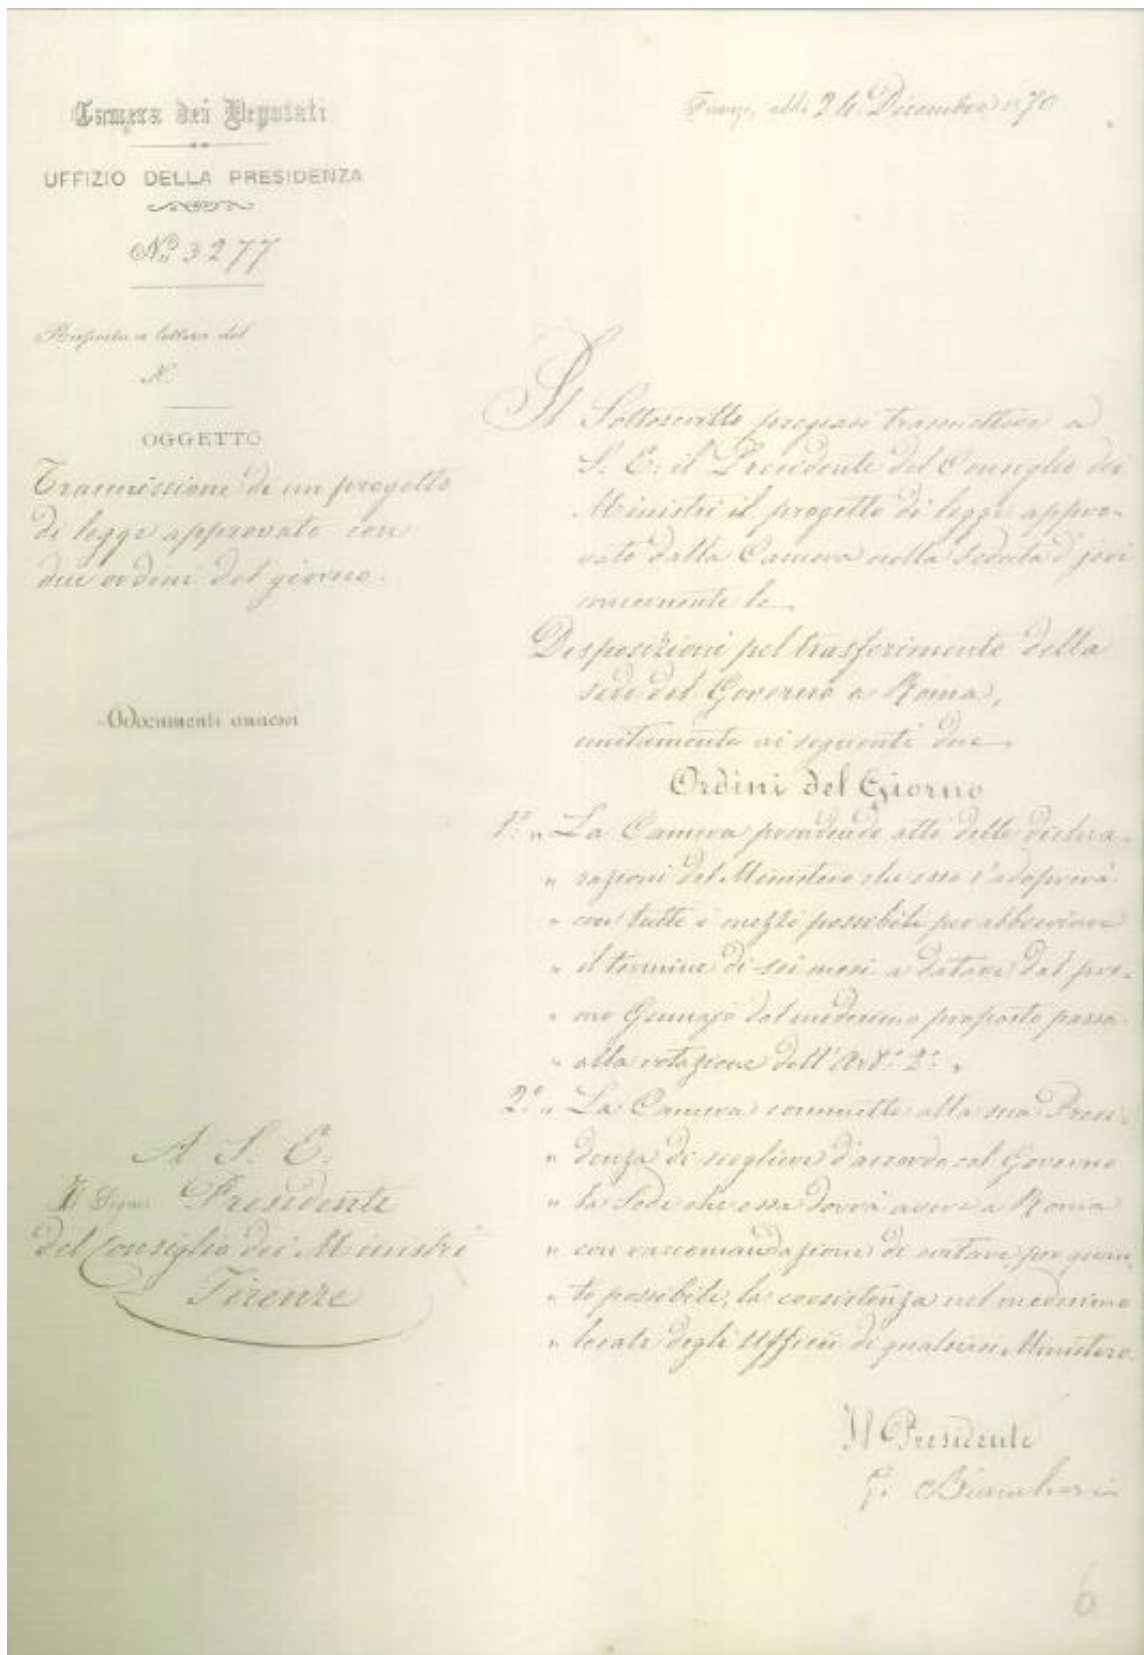 Camera dei Deputati
UFFIZIO DELLA PRESIDENZA
No 3277
Risposta a lettera del
N.
OGGETTO
Trasmissione di un progetto
di legge approvato con
due ordini del giorno.
Documenti annessi
A S. E.
Il Signor Presidente
del Consiglio dei Ministri
Firenze
Firenze, addì 24 Dicembre 1870
Il Sottoscritto pregiasi trasmettere a
S. E. il Presidente del Consiglio dei
Ministri il progetto di legge appro-
vato dalla Camera nella seduta d'jeri
concernente le
Disposizioni pel trasferimento della
sede del Governo a Roma,
unitamente ai seguenti due
Ordini del Giorno
1º " La Camera prendendo atto delle dichia-
" razioni del Ministero che esso s'adoprerà
" con tutti i mezzi possibili per abbreviare
" il termine di sei mesi a datare dal pri-
" mo Gennajo dal medesimo proposto passa
" alla votazione dell'Art. 2º "
2º " La Camera commette alla sua Presi-
" denza di scegliere d'accordo col Governo
" la Sede che essa dovrà avere a Roma
" con raccomandazione di evitare, per quan-
" to possibile, la coesistenza nel medesimo
" locale degli Ufficii di qualsiasi Ministero.
Il Presidente
G. Biancheri
6